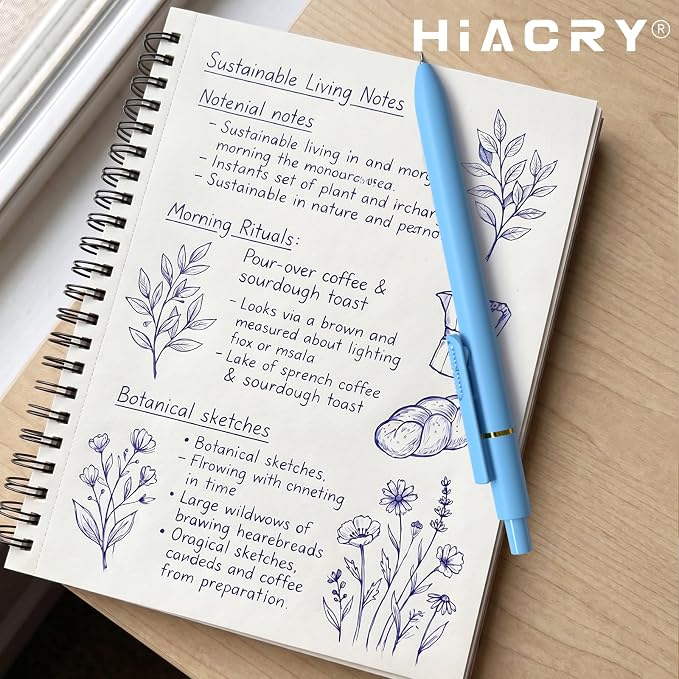 HiACRY®
Sustainable Living Notes
Notenial notes
- Sustainable living in and morg
morning the
- Instants set of plant and irchar
- Sustainable in nature and
Morning Rituals:
Pour-over coffee &
sourdough toast
- Looks via a brown and
measured about lighting
fiox or msala
- Lake of sprench coffee
& sourdough toast
Botanical sketches
• Botanical sketches.
- Flrowing with cnneting
in time
• Large wildwows of
brawing hearebreads
• Oragical sketches,
candeds and coffee
from preparation.